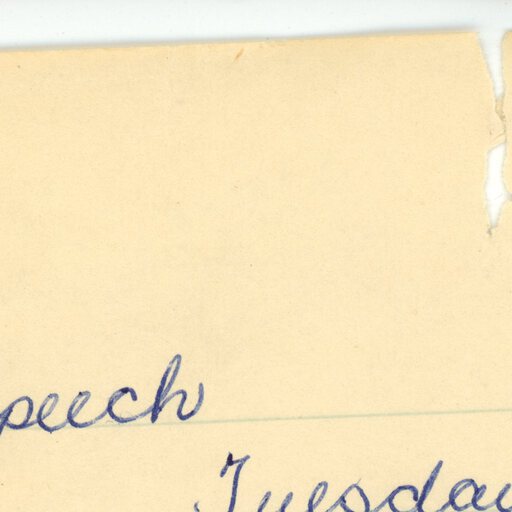 peech
Tuesday